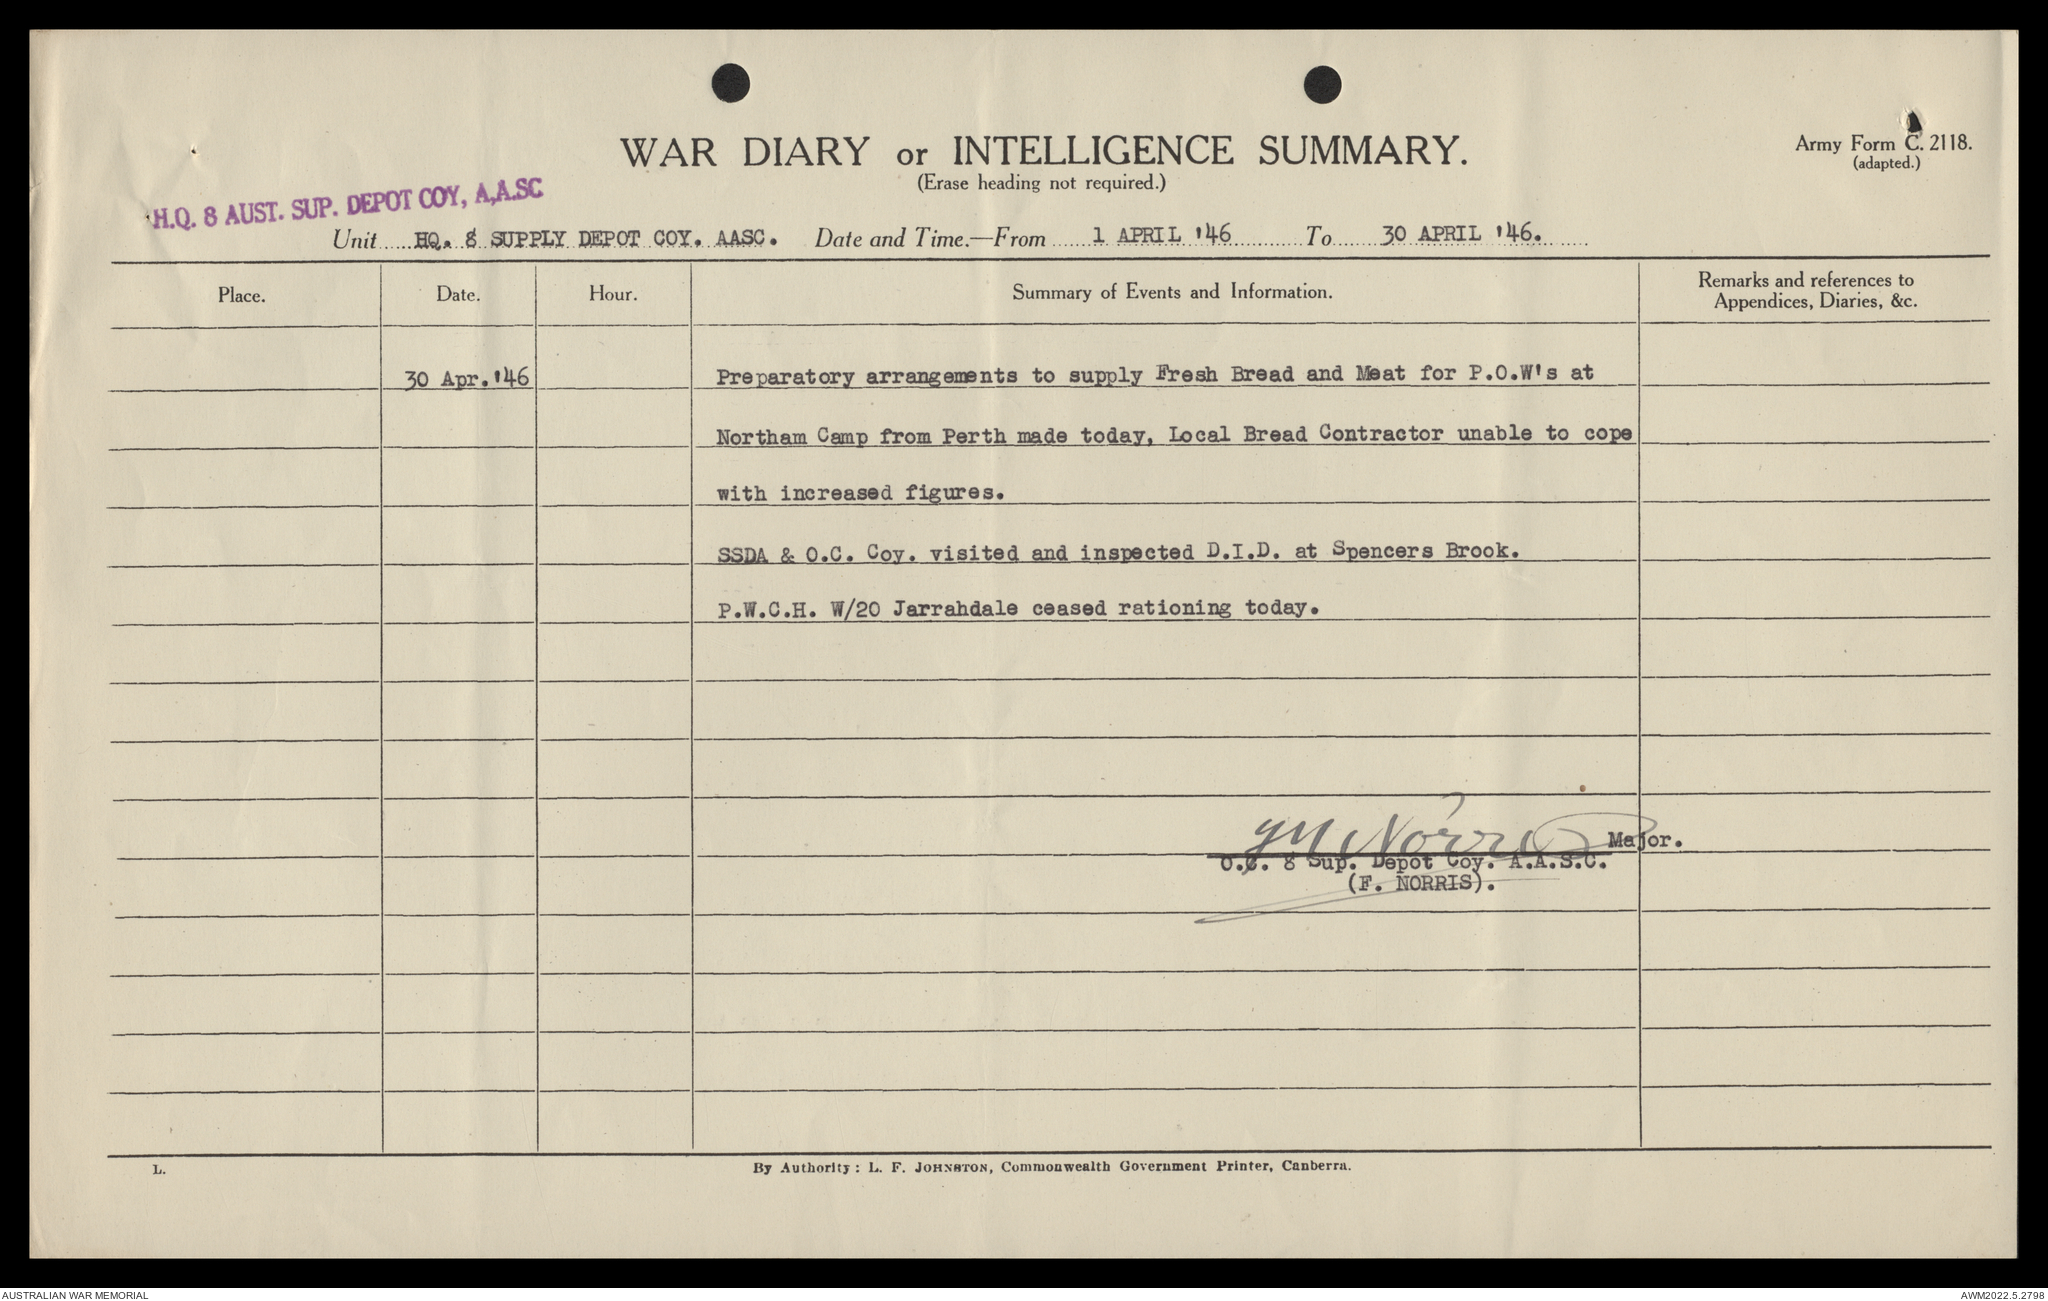 WAR DIARY or INTELLIGENCE SUMMARY.
(Erase heading not required.)
Army Form C. 2118.
(adapted.)
H.Q. 8 AUST. SUP. DEPOT COY, A,A.SC
Unit HQ. 8 SUPPLY DEPOT COY. AASC. Date and Time.—From 1 APRIL '46 To 30 APRIL '46.
Place. Date. Hour. Summary of Events and Information. Remarks and references to
Appendices, Diaries, &c.
30 Apr.'46 Preparatory arrangements to supply Fresh Bread and Meat for P.O.W's at
Northam Camp from Perth made today, Local Bread Contractor unable to cope
with increased figures.
SSDA & O.C. Coy. visited and inspected D.I.D. at Spencers Brook.
P.W.C.H. W/20 Jarrahdale ceased rationing today.
Norris Major.
O.C. 8 Sup. Depot Coy. A.A.S.C.
(F. NORRIS).
L. By Authority: L. F. JOHNSTON, Commonwealth Government Printer, Canberra.
AUSTRALIAN WAR MEMORIAL AWM2022.5.2798